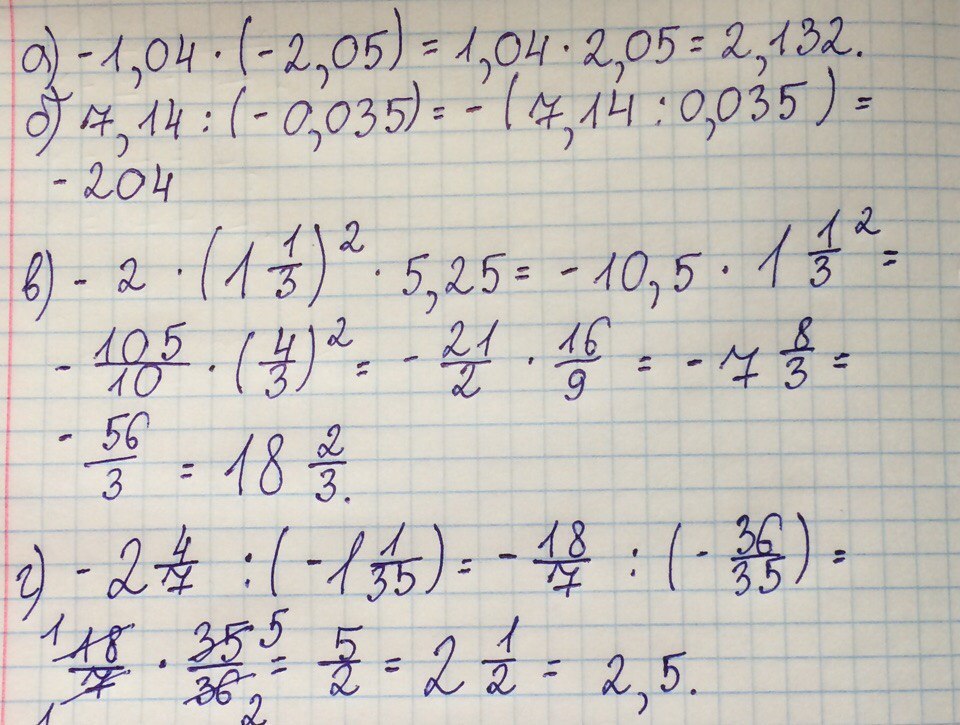 а) - 1,04 · (- 2,05) = 1,04 · 2,05 = 2,132.
б) 7,14 : (- 0,035) = - (7,14 : 0,035) =
- 204
в) - 2 · (1 1/3)² · 5,25 = - 10,5 · 1 1/3² =
- 105/10 · (4/3)² = - 21/2 · 16/9 = - 7 8/3 =
- 56/3 = 18 2/3.
г) - 2 4/7 : (- 1 1/35) = - 18/7 : (- 36/35) =
1 18/7 1 · 35/36 5 2 = 5/2 = 2 1/2 = 2,5.